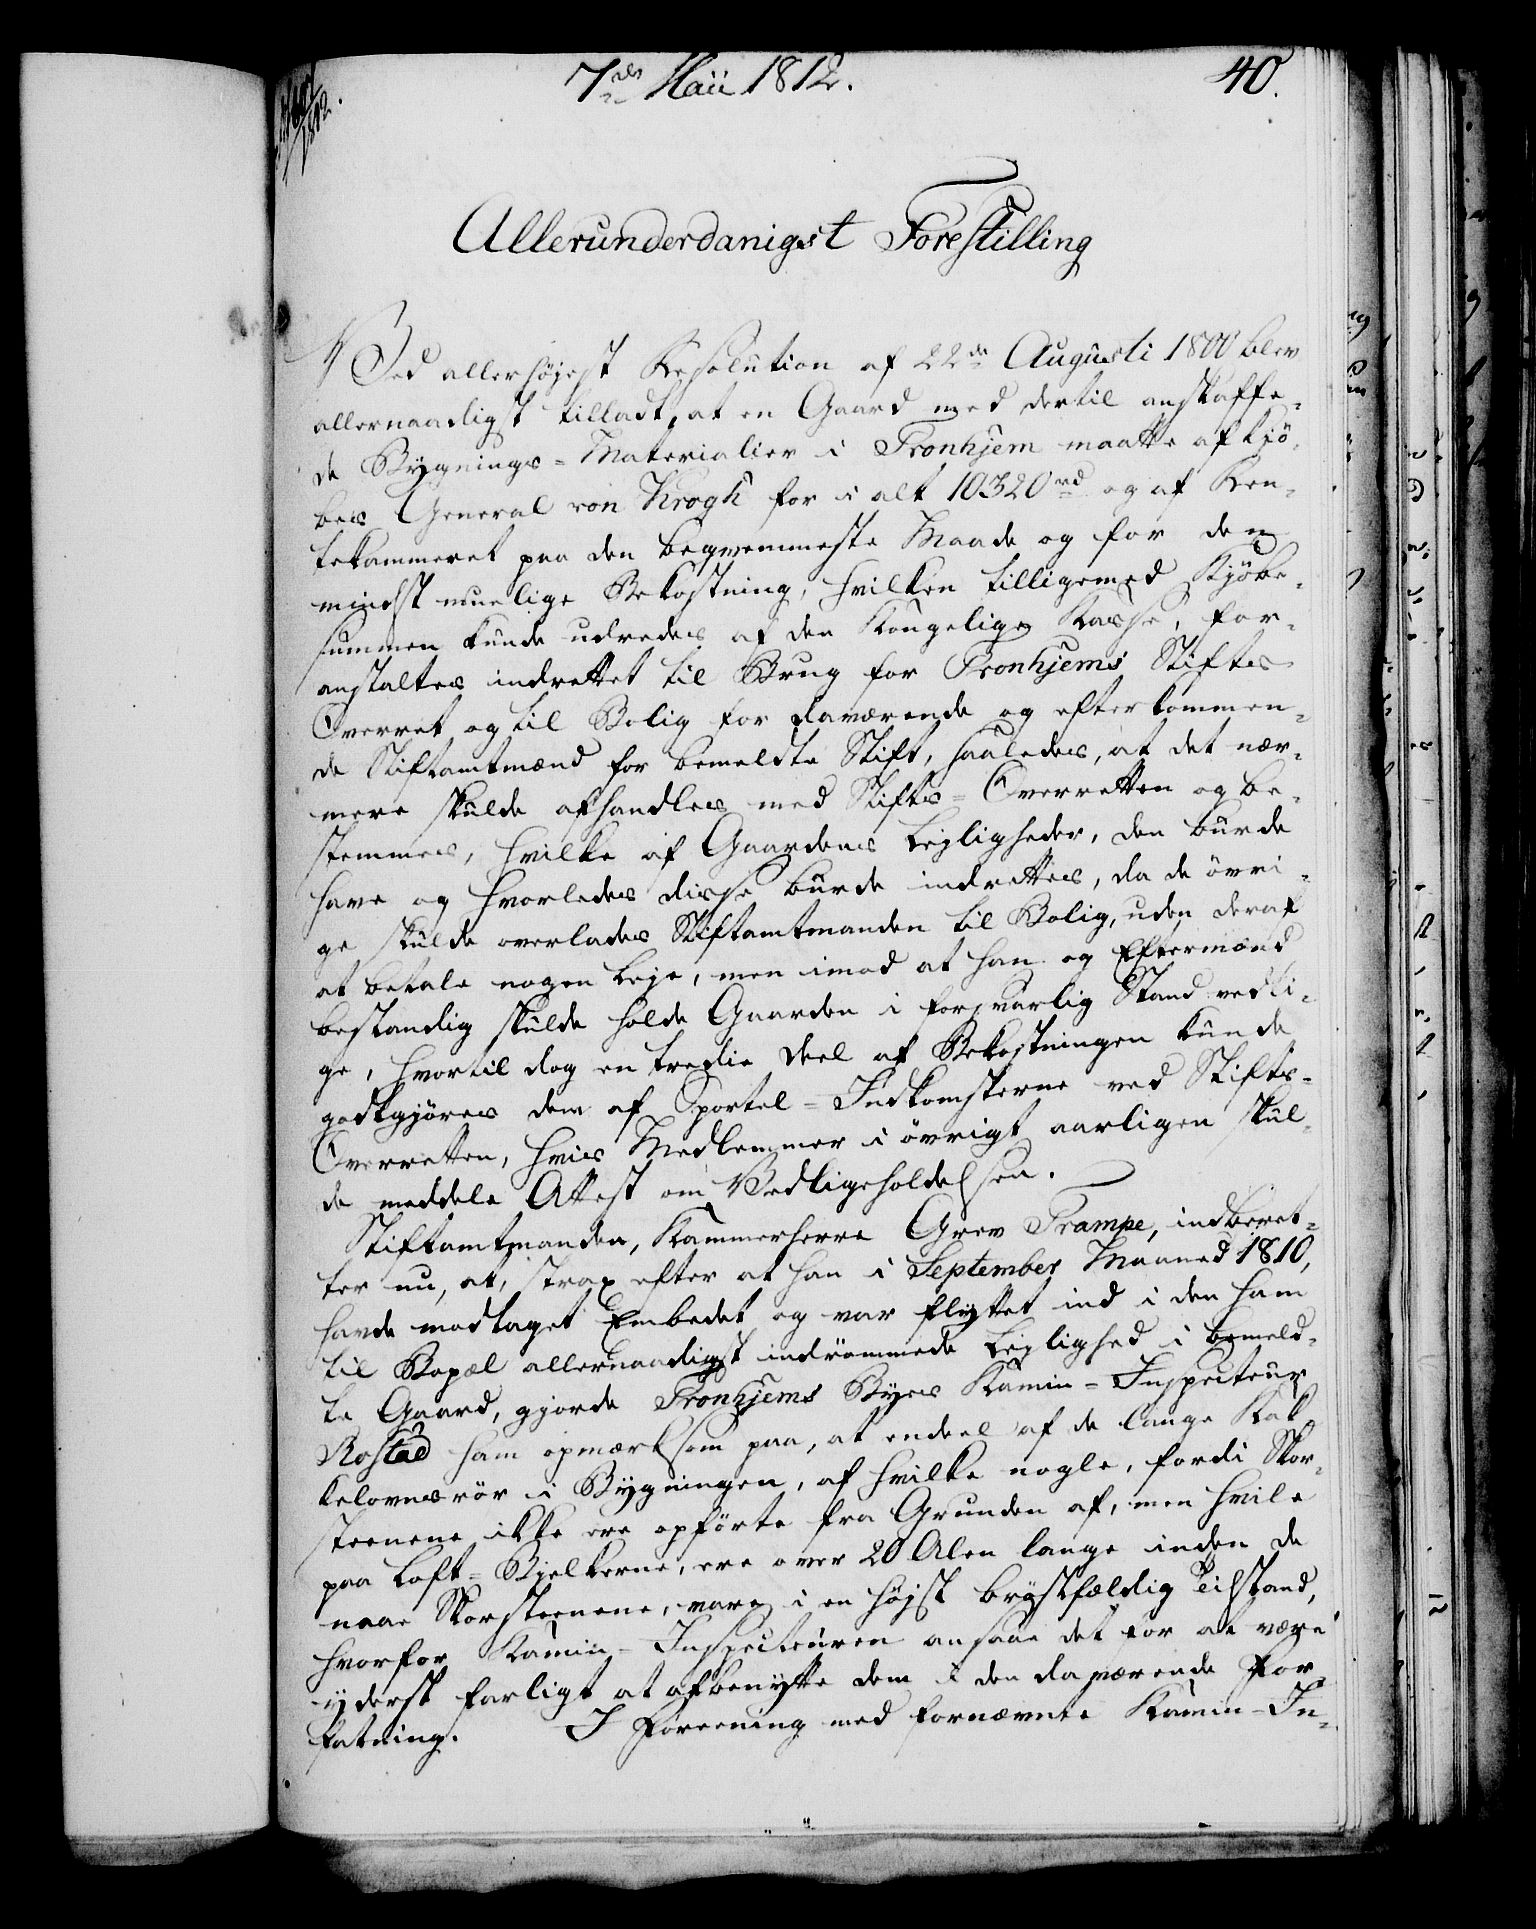 7de Maii 1812.
40.
1812.
Allerunderdanigst Forestilling
Ved allerhøjest Resolution af 22de Augusti 1800 blev
allernaadigst tilladt, at en Gaard med dertil anskaffe-
de Bygnings-Materialier i Tronhjem maatte afkjö-
bes General von Krogh for i alt 10320 rd og af Ren-
tekammeret paa den beqvemmeste Maade og for den
mindst muelige Bekostning, hvilken tilligemed Kjöbe-
summen kunde udredes af den Kongelige Kasse, for-
anstaltes indrettet til Brug for Tronhjems Stifts
Overret og til Bolig for daværende og efterkommen-
de Stiftamtmænd for bemeldte Stift, saaledes, at det nær-
mere skulde afhandles med Stifts-Overretten og be-
stemmes, hvilke af Gaardens Lejligheder, den burde
have og hvorledes disse burde indrettes, da de övri-
ge skulde overlades Stiftamtmanden til Bolig, uden deraf
at betale nogen Leje, men imod at han og Eftermænd
bestandig skulde holde Gaarden i forsvarlig Stand vedli-
ge, hvortil dog en tredie Deel af Bekostningen kunde
godtgjöres dem af Sportel-Indkomsterne ved Stifts-
Overretten, hvis Medlemmer i övrigt aarligen skul-
de meddele Attest om Vedligeholdelsen.
Stiftamtmanden, Kammerherre Grev Trampe, indberet-
ter nu, at, strax efter at han i September Maaned 1810,
havde modtaget Embedet og var flyttet ind i den ham
til Bopæl allernaadigst indrömmede Lejlighed i bemeld-
te Gaard, gjorde Tronhjems Byes Kamin-Inspecteur
Rostad ham opmærksom paa, at endeel af de lange Kak-
kelovnsrör i Bygningen, af hvilke nogle, fordi Skor-
stenene ikke ere opförte fra Grunden af, men hvile
paa Loft-Bjelkerne, ere over 20 Alen lange inden de
naae Skorstenene, vare i en højst bröstfældig Tilstand,
hvorfor Kamin-Inspecteuren ansaae det for at være
yderst farligt at afbenytte dem i den daværende For-
fatning. I Foreening med fornævnte Kamin-In-